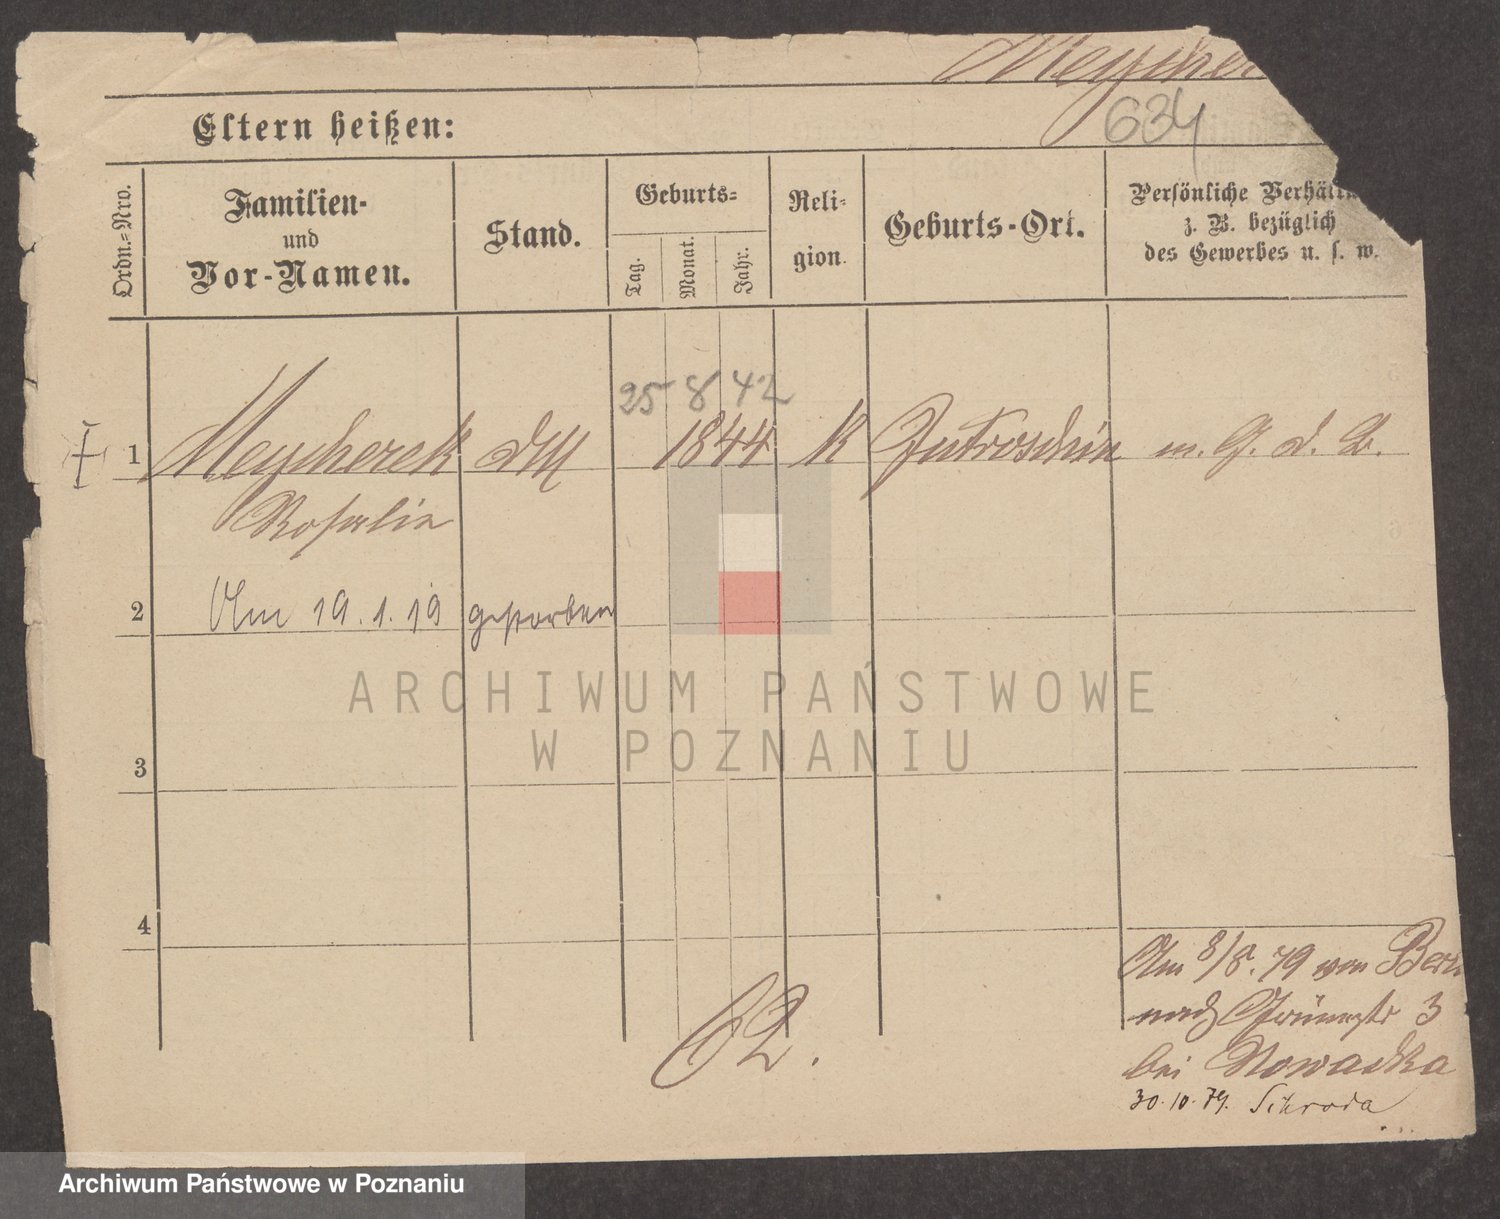 Meycher
634
Eltern heißen:
Ordn.-Nro.
Familien-
und
Vor-Namen.
Stand.
Geburts-
Tag.
Monat.
Jahr.
Reli-
gion.
Geburts-Ort.
Persönliche Verhält
z. B. bezüglich
des Gewerbes u. s. w.
25 8 42
1 Meycherek 1844 K Jutroschin m. G. d. B.
Rosalie
2 Am 19.1.19 gestorben
3
4
62.
Am 8/8. 79 von Ber
nach Grünestr 3
bei Nowacka
30.10.79. Schroda
ARCHIWUM PAŃSTWOWE
W POZNANIU
Archiwum Państwowe w Poznaniu